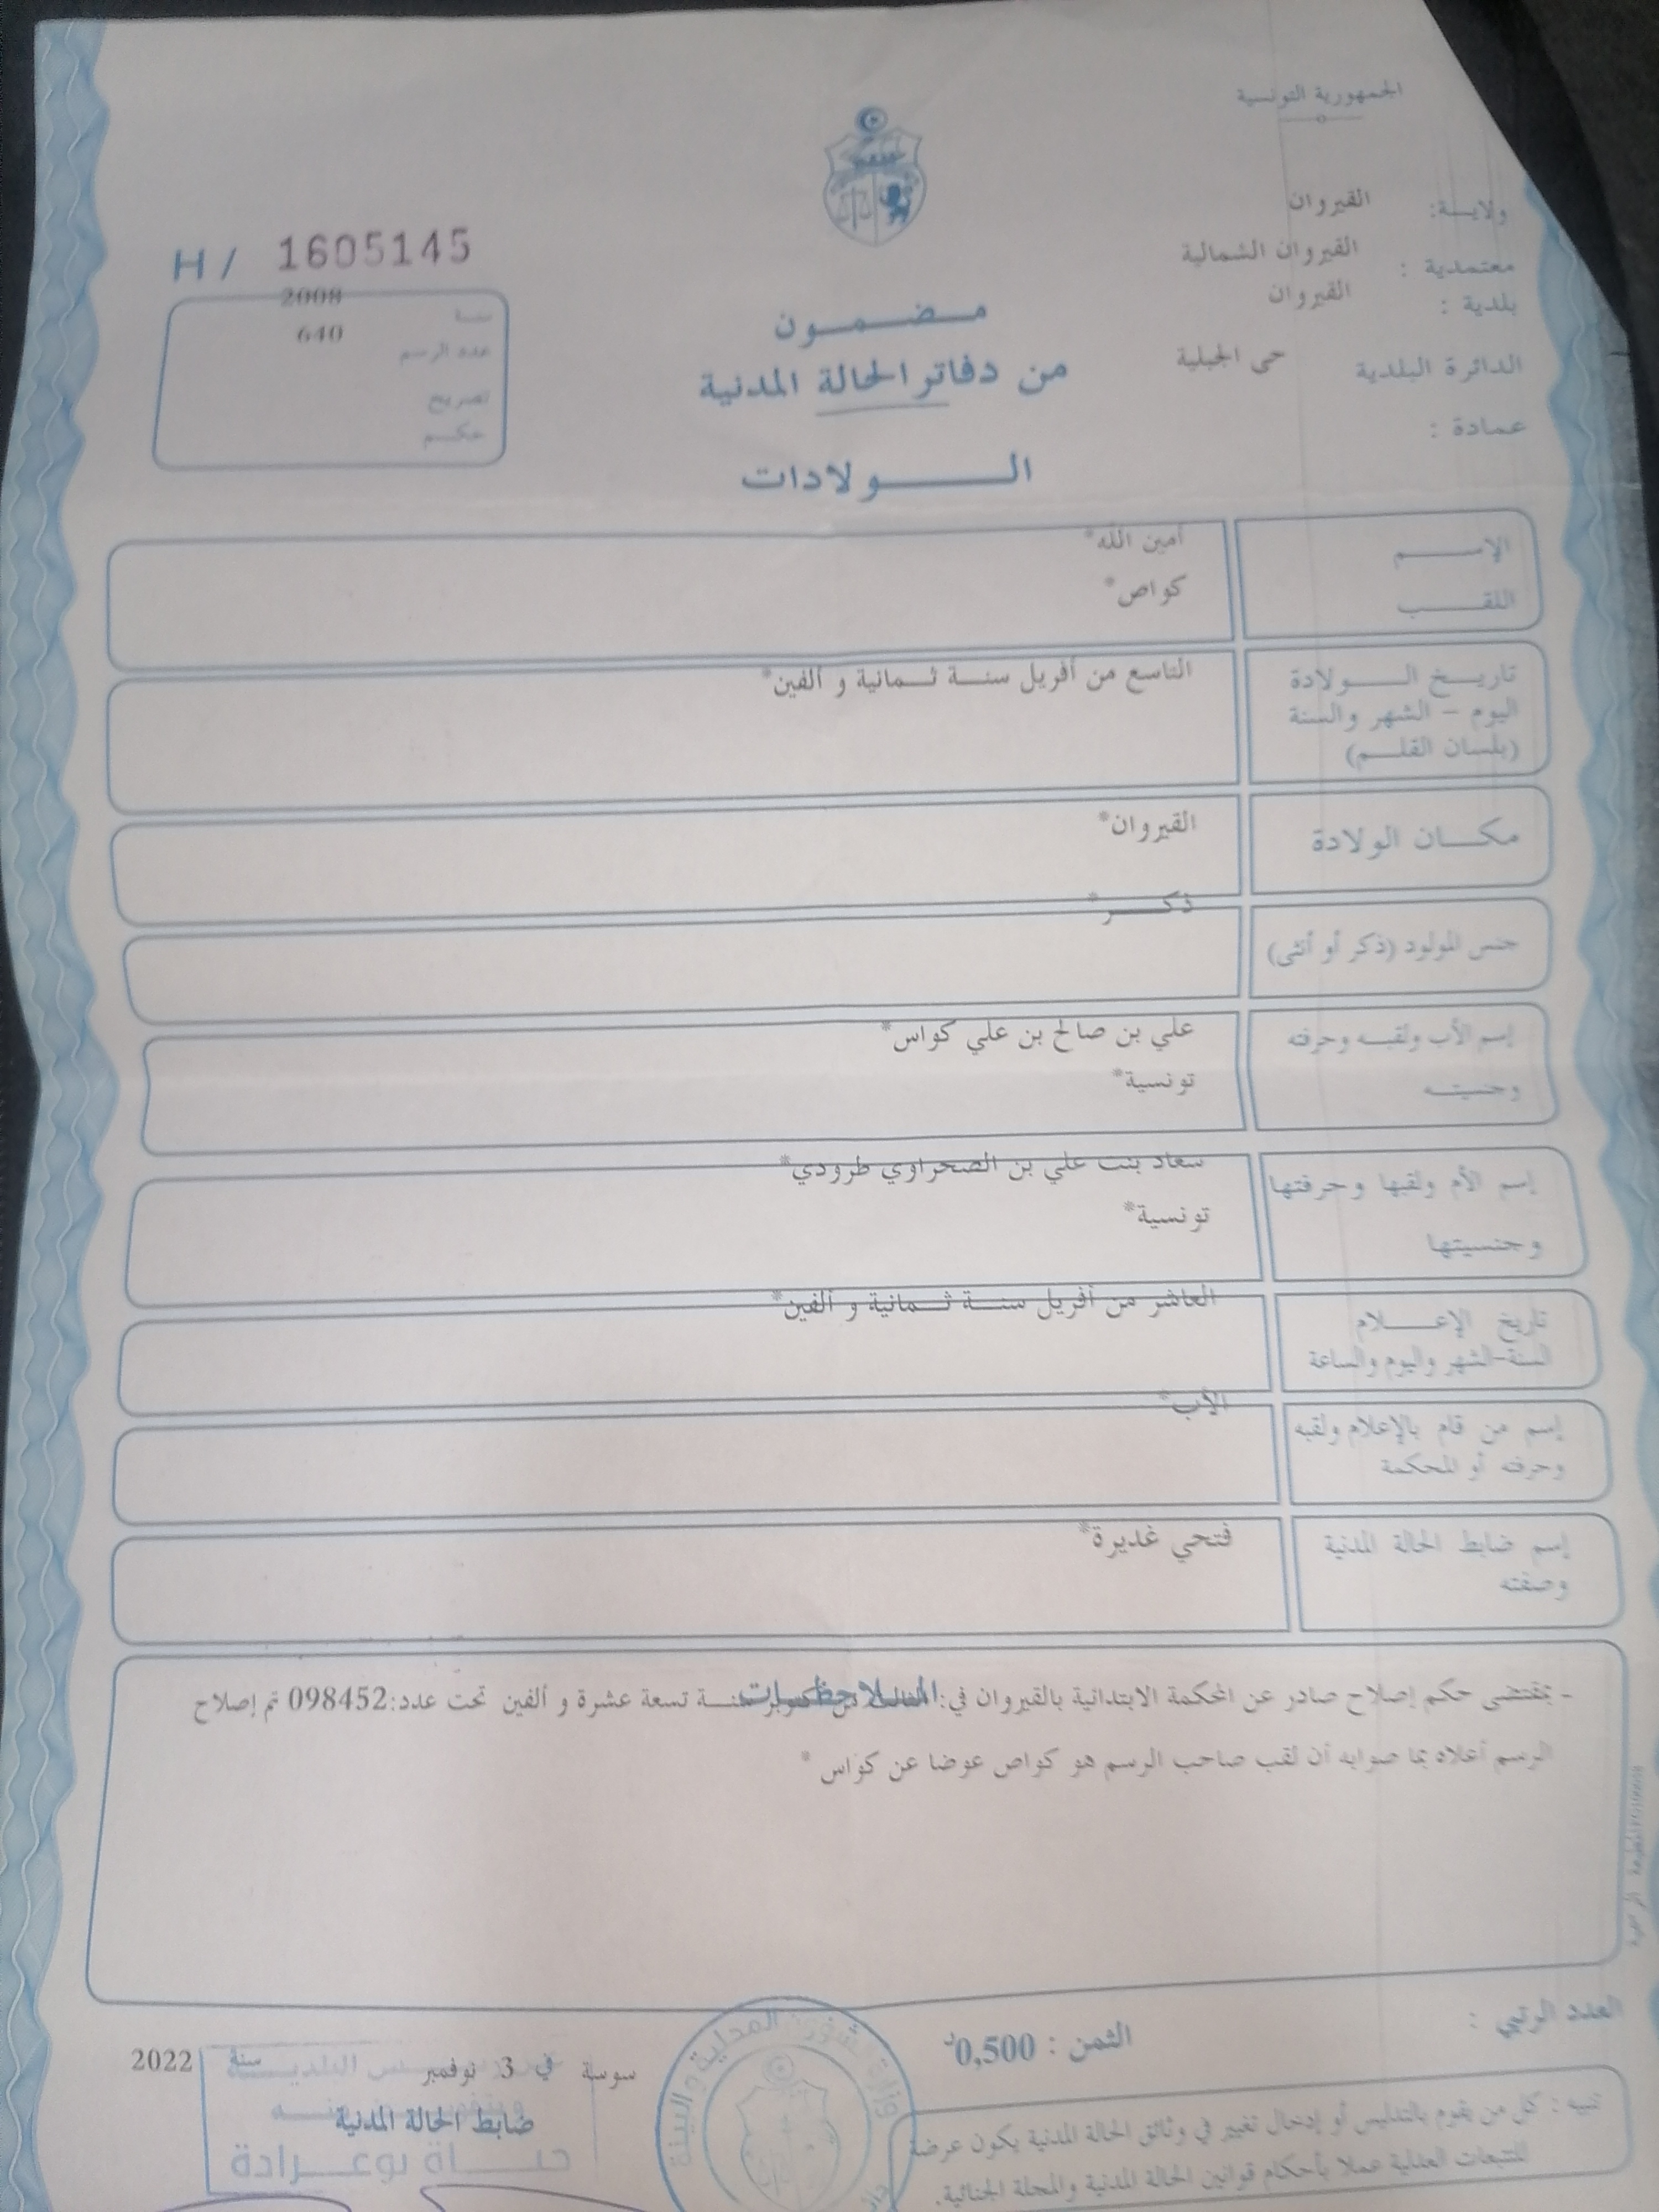 الجمهورية التونسية
ولايـــة: القيروان
معتمدية : القيروان الشمالية
بلدية : القيروان
الدائرة البلدية حي الجبلية
عمادة :
مـضـمـون
من دفاتر الحالة المدنية
الـــولادات
H / 1605145
سنة 2008
عدد الرسم 640
تصريح
حكـم
الإســـم أمين الله*
اللقـــب كواص*
تاريـخ الـــولادة التاسع من أفريل سنـــة ثـــمانية و ألفين*
اليوم – الشهر والسنة
(بلسان القلـــم)
مكـــان الولادة القيروان*
جنس المولود (ذكر أو أنثى) ذكـــر*
إسم الأب ولقبـه وحرفته علي بن صالح بن علي كواس*
وجنسيتـه تونسية*
إسم الأم ولقبها وحرفتها سعاد بنت علي بن الصحراوي طرودي*
وجنسيتها تونسية*
تاريخ الإعـــلام العاشر من أفريل سنـــة ثـــمانية و ألفين*
السنة-الشهر واليوم والساعة
إسم من قام بالإعلام ولقبه الأب*
وحرفته أو المحكمة
إسم ضابط الحالة المدنية فتحي غديرة*
وصفته
المـلاحظـــات
- بمقتضى حكم إصلاح صادر عن المحكمة الابتدائية بالقيروان في: من سنـــة تسعة عشرة و ألفين تحت عدد:098452 تم إصلاح
الرسم أعلاه بما صوابه أن لقب صاحب الرسم هو كواص عوضا عن كواس *
العدد الرتبي :
الثمن : 0,500د
سوسة في 3 نوفمبر سنة 2022
ضابط الحالة المدنية
حيـــاة بوعـــرادة
وزارة الشؤون المحلية والبيئة
تنبيه : كل من يقوم بالتدليس أو إدخال تغيير في وثائق الحالة المدنية يكون عرضة
للتتبعات العدلية عملا بأحكام قوانين الحالة المدنية والمجلة الجنائية.